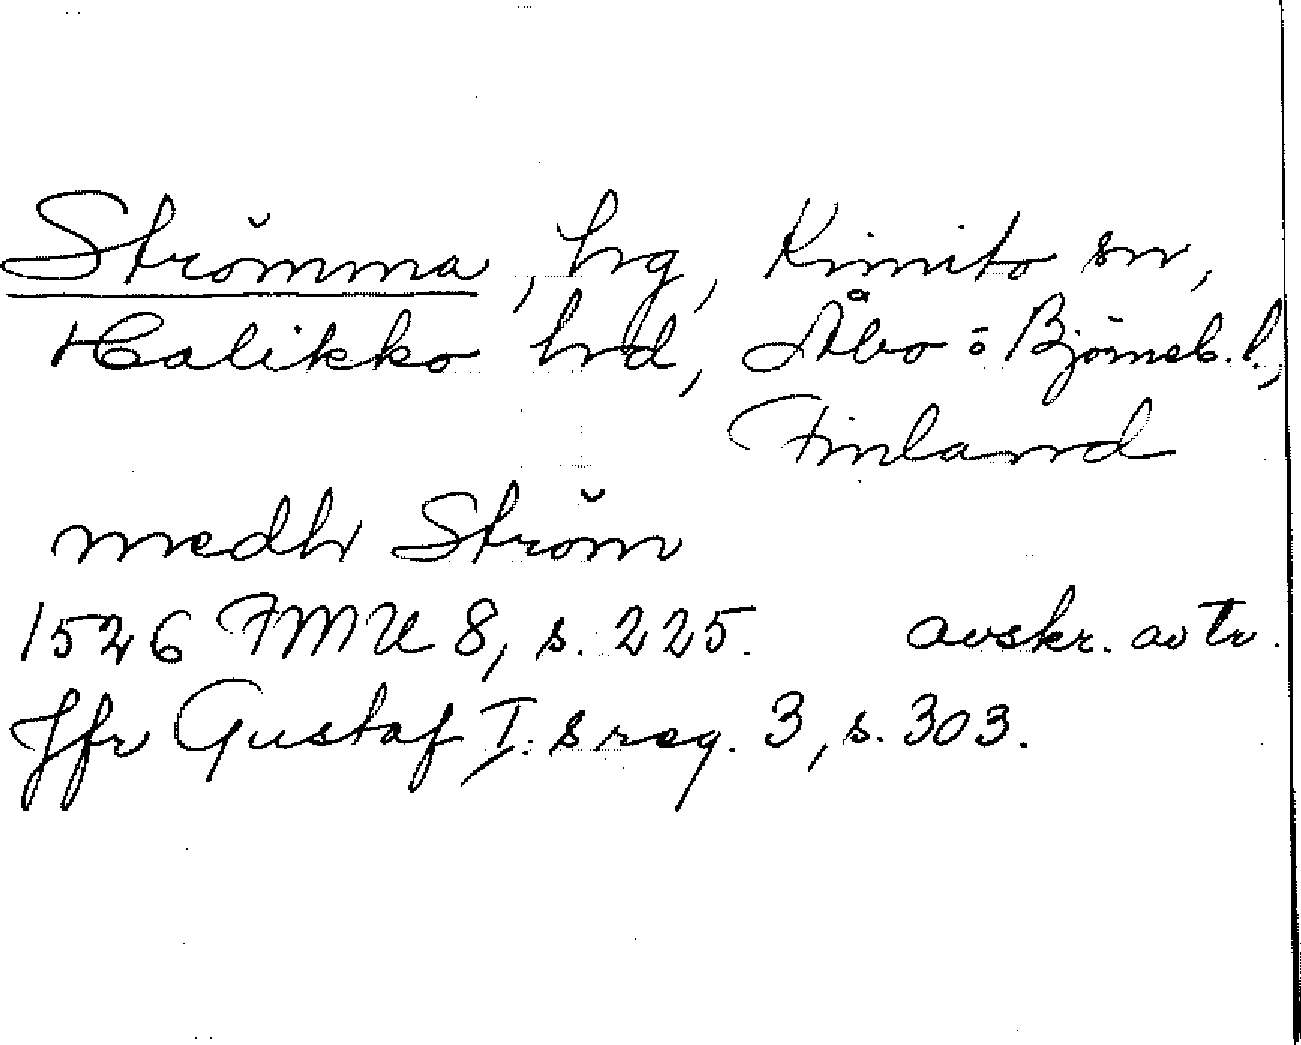 Strömma, hrg, Kimito sn,
Halikko hrd, Åbo o Björneb. l.,
Finland
medh Ström
1526 FMU 8, s. 225. avskr. av tr.
Jfr Gustaf I:s reg. 3, s. 303.